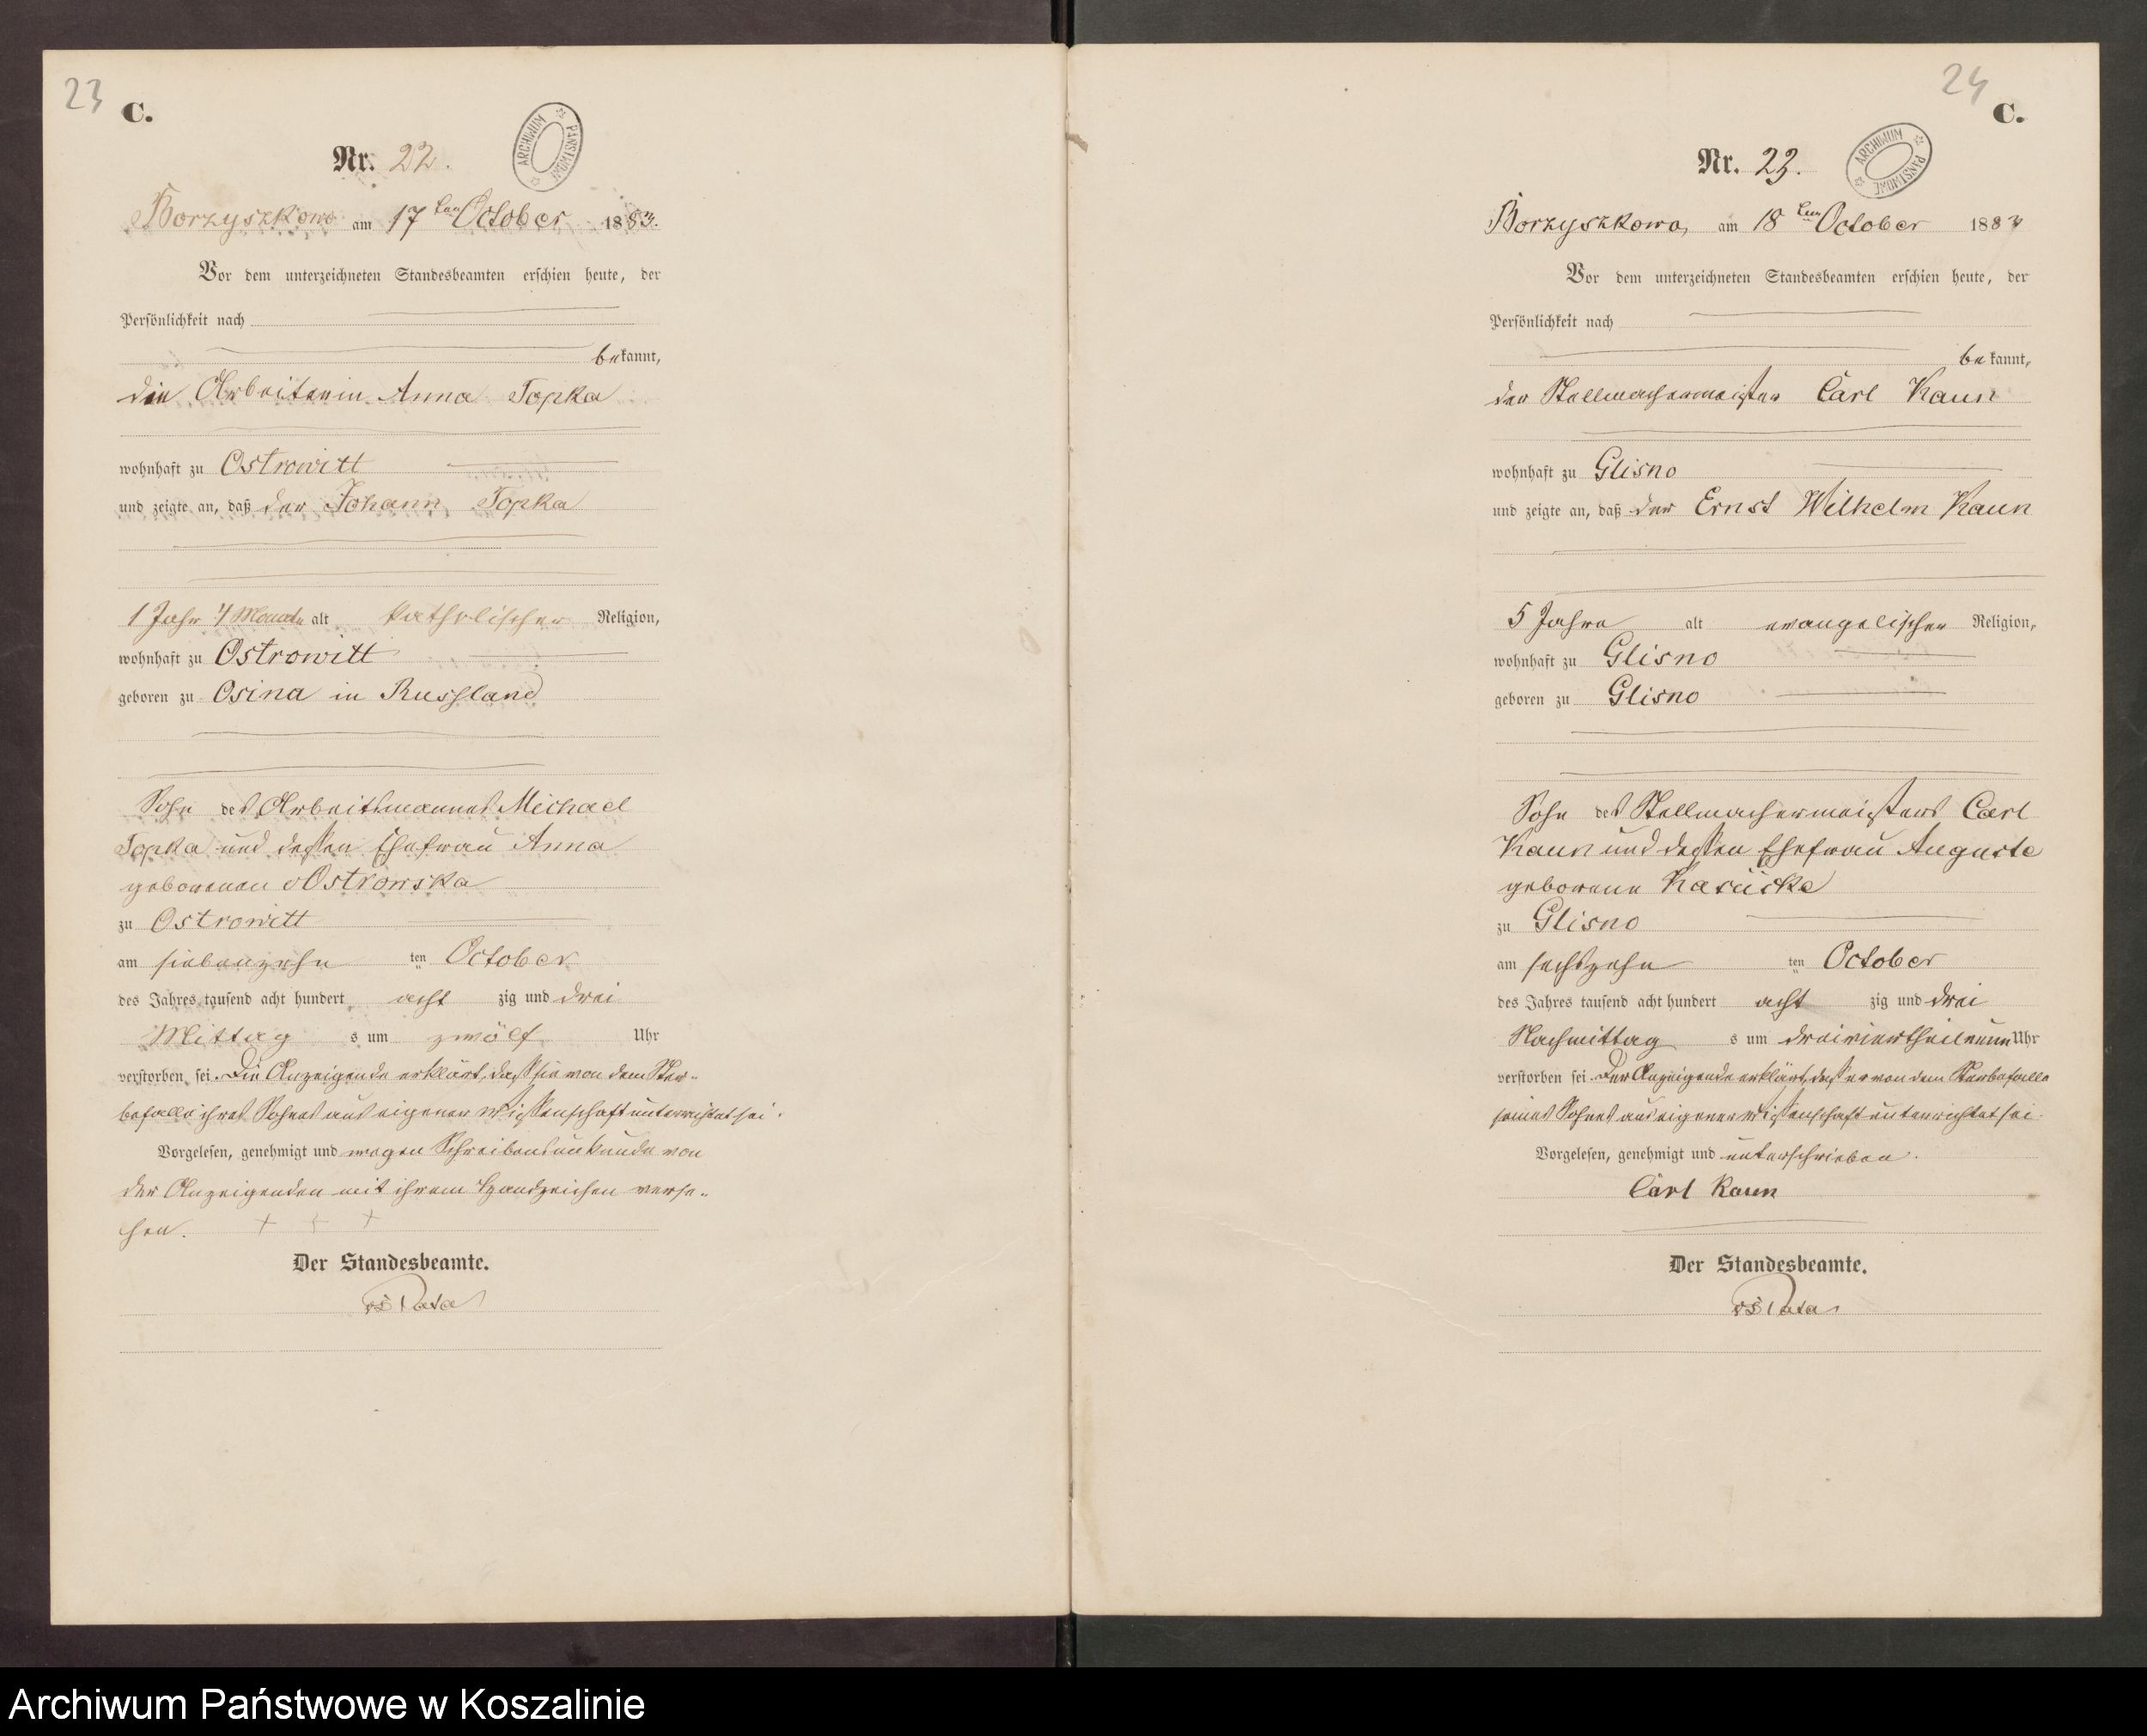 23
C.
ARCHIWUM PAŃSTWOWE
Nr. 22.
Borzyszkowo am 17ten October 1883.
Vor dem unterzeichneten Standesbeamten erschien heute, der
Persönlichkeit nach
bekannt,
die Arbeiterin Anna Topka
wohnhaft zu Ostrowitt
und zeigte an, daß der Johann Topka
1 Jahr 4 Monate alt katholischer Religion,
wohnhaft zu Ostrowitt
geboren zu Osina in Russland
Sohn des Arbeitsmannes Michael
Topka und dessen Ehefrau Anna
geborenen Ostrowska
zu Ostrowitt
am siebenzehn ten October
des Jahres tausend acht hundert acht zig und drei
Mittag s um zwölf Uhr
verstorben sei. Die Anzeigende erklärt, dass sie von dem Ster-
befalle ihres Sohnes aus eigener Wissenschaft unterrichtet sei.
Vorgelesen, genehmigt und wegen Schreibensunkunde von
der Anzeigenden mit ihrem Handzeichen verse-
hen. + + +
Der Standesbeamte.
24
C.
ARCHIWUM PAŃSTWOWE
Nr. 23.
Borzyszkowo, am 18ten October 1883
Vor dem unterzeichneten Standesbeamten erschien heute, der
Persönlichkeit nach
bekannt,
der Stellmachermeister Carl Kaun
wohnhaft zu Glisno
und zeigte an, daß der Ernst Wilhelm Kaun
5 Jahre alt evangelischer Religion,
wohnhaft zu Glisno
geboren zu Glisno
Sohn des Stellmachermeisters Carl
Kaun und dessen Ehefrau Auguste
geborene
zu Glisno
am sechszehn ten October
des Jahres tausend acht hundert acht zig und drei
Nachmittag s um dreiviertheilneun Uhr
verstorben sei. Der Anzeigende erklärt, dass er von dem Sterbefalle
seines Sohnes aus eigener Wissenschaft unterrichtet sei.
Vorgelesen, genehmigt und unterschrieben.
Carl Kaun
Der Standesbeamte.
Archiwum Państwowe w Koszalinie